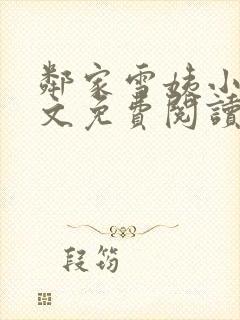 鄰家雪姨小
文免費閱讀
段筠